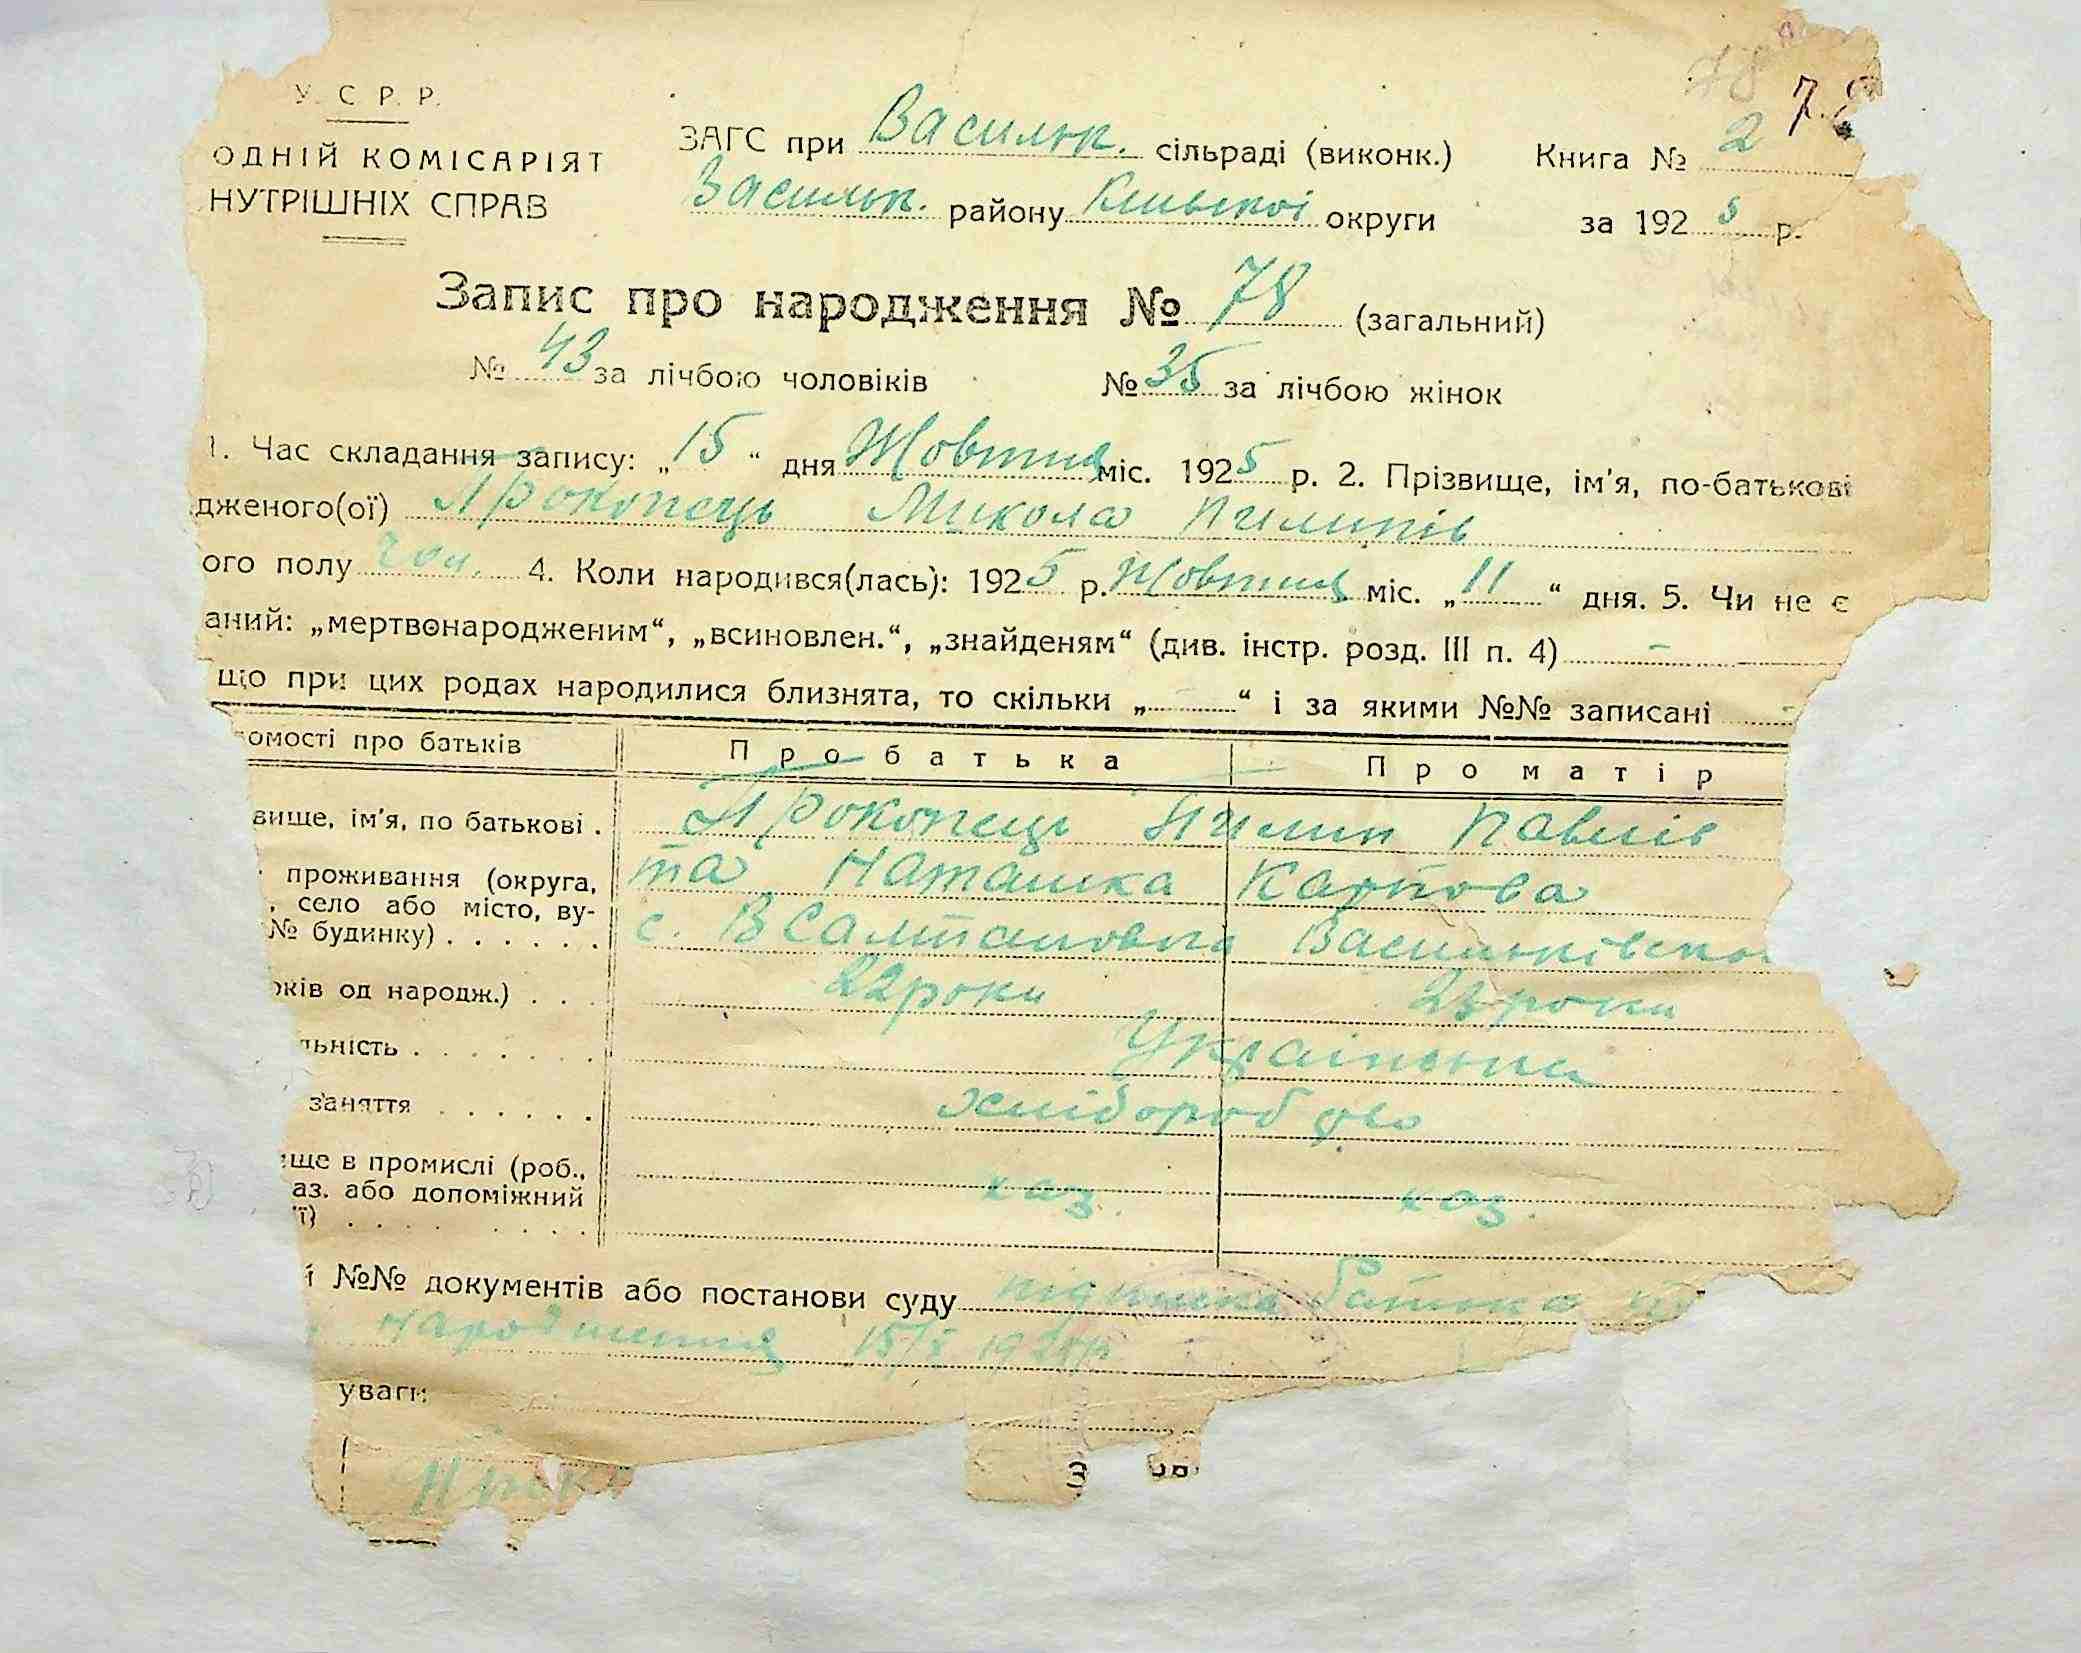 У. С. Р. Р.
ОДНІЙ КОМІСАРІЯТ
НУТРІШНІХ СПРАВ
ЗАГС при Васильк. сільраді (виконк.) Книга № 2
Васильк. району Київської округи за 1925 р.
Запис про народження № 78 (загальний)
№ 43 за лічбою чоловіків № 35 за лічбою жінок
1. Час складання запису: „15“ дня Жовтня міс. 1925 р. 2. Прізвище, ім'я, по-батькові
дженого(ої) Прокопець Микола Пилипів
ого полу чол. 4. Коли народився(лась): 1925 р. Жовтня міс. „11“ дня. 5. Чи не є
аний: „мертвонародженим“, „всиновлен.“, „знайденям“ (див. інстр. розд. III п. 4) -
що при цих родах народилися близнята, то скільки „ “ і за якими №№ записані -
омості про батьків Про батька Про матір
вище, ім'я, по батькові . Прокопець Пилип Павлів
та Наташка Карпова
проживання (округа,
, село або місто, ву-
№ будинку) . . . . . . с. В Салтановка Васильківсько
оків од народж.) . . . 22 роки 23 роки
льність . . . . . . . Українська
заняття . . . . . . хліборобство
ище в промислі (роб.,
аз. або допоміжний хаз. хаз.
ії) . . . . . . . .
і №№ документів або постанови суду підписка батька
народження 15/X 1925 р
уваги